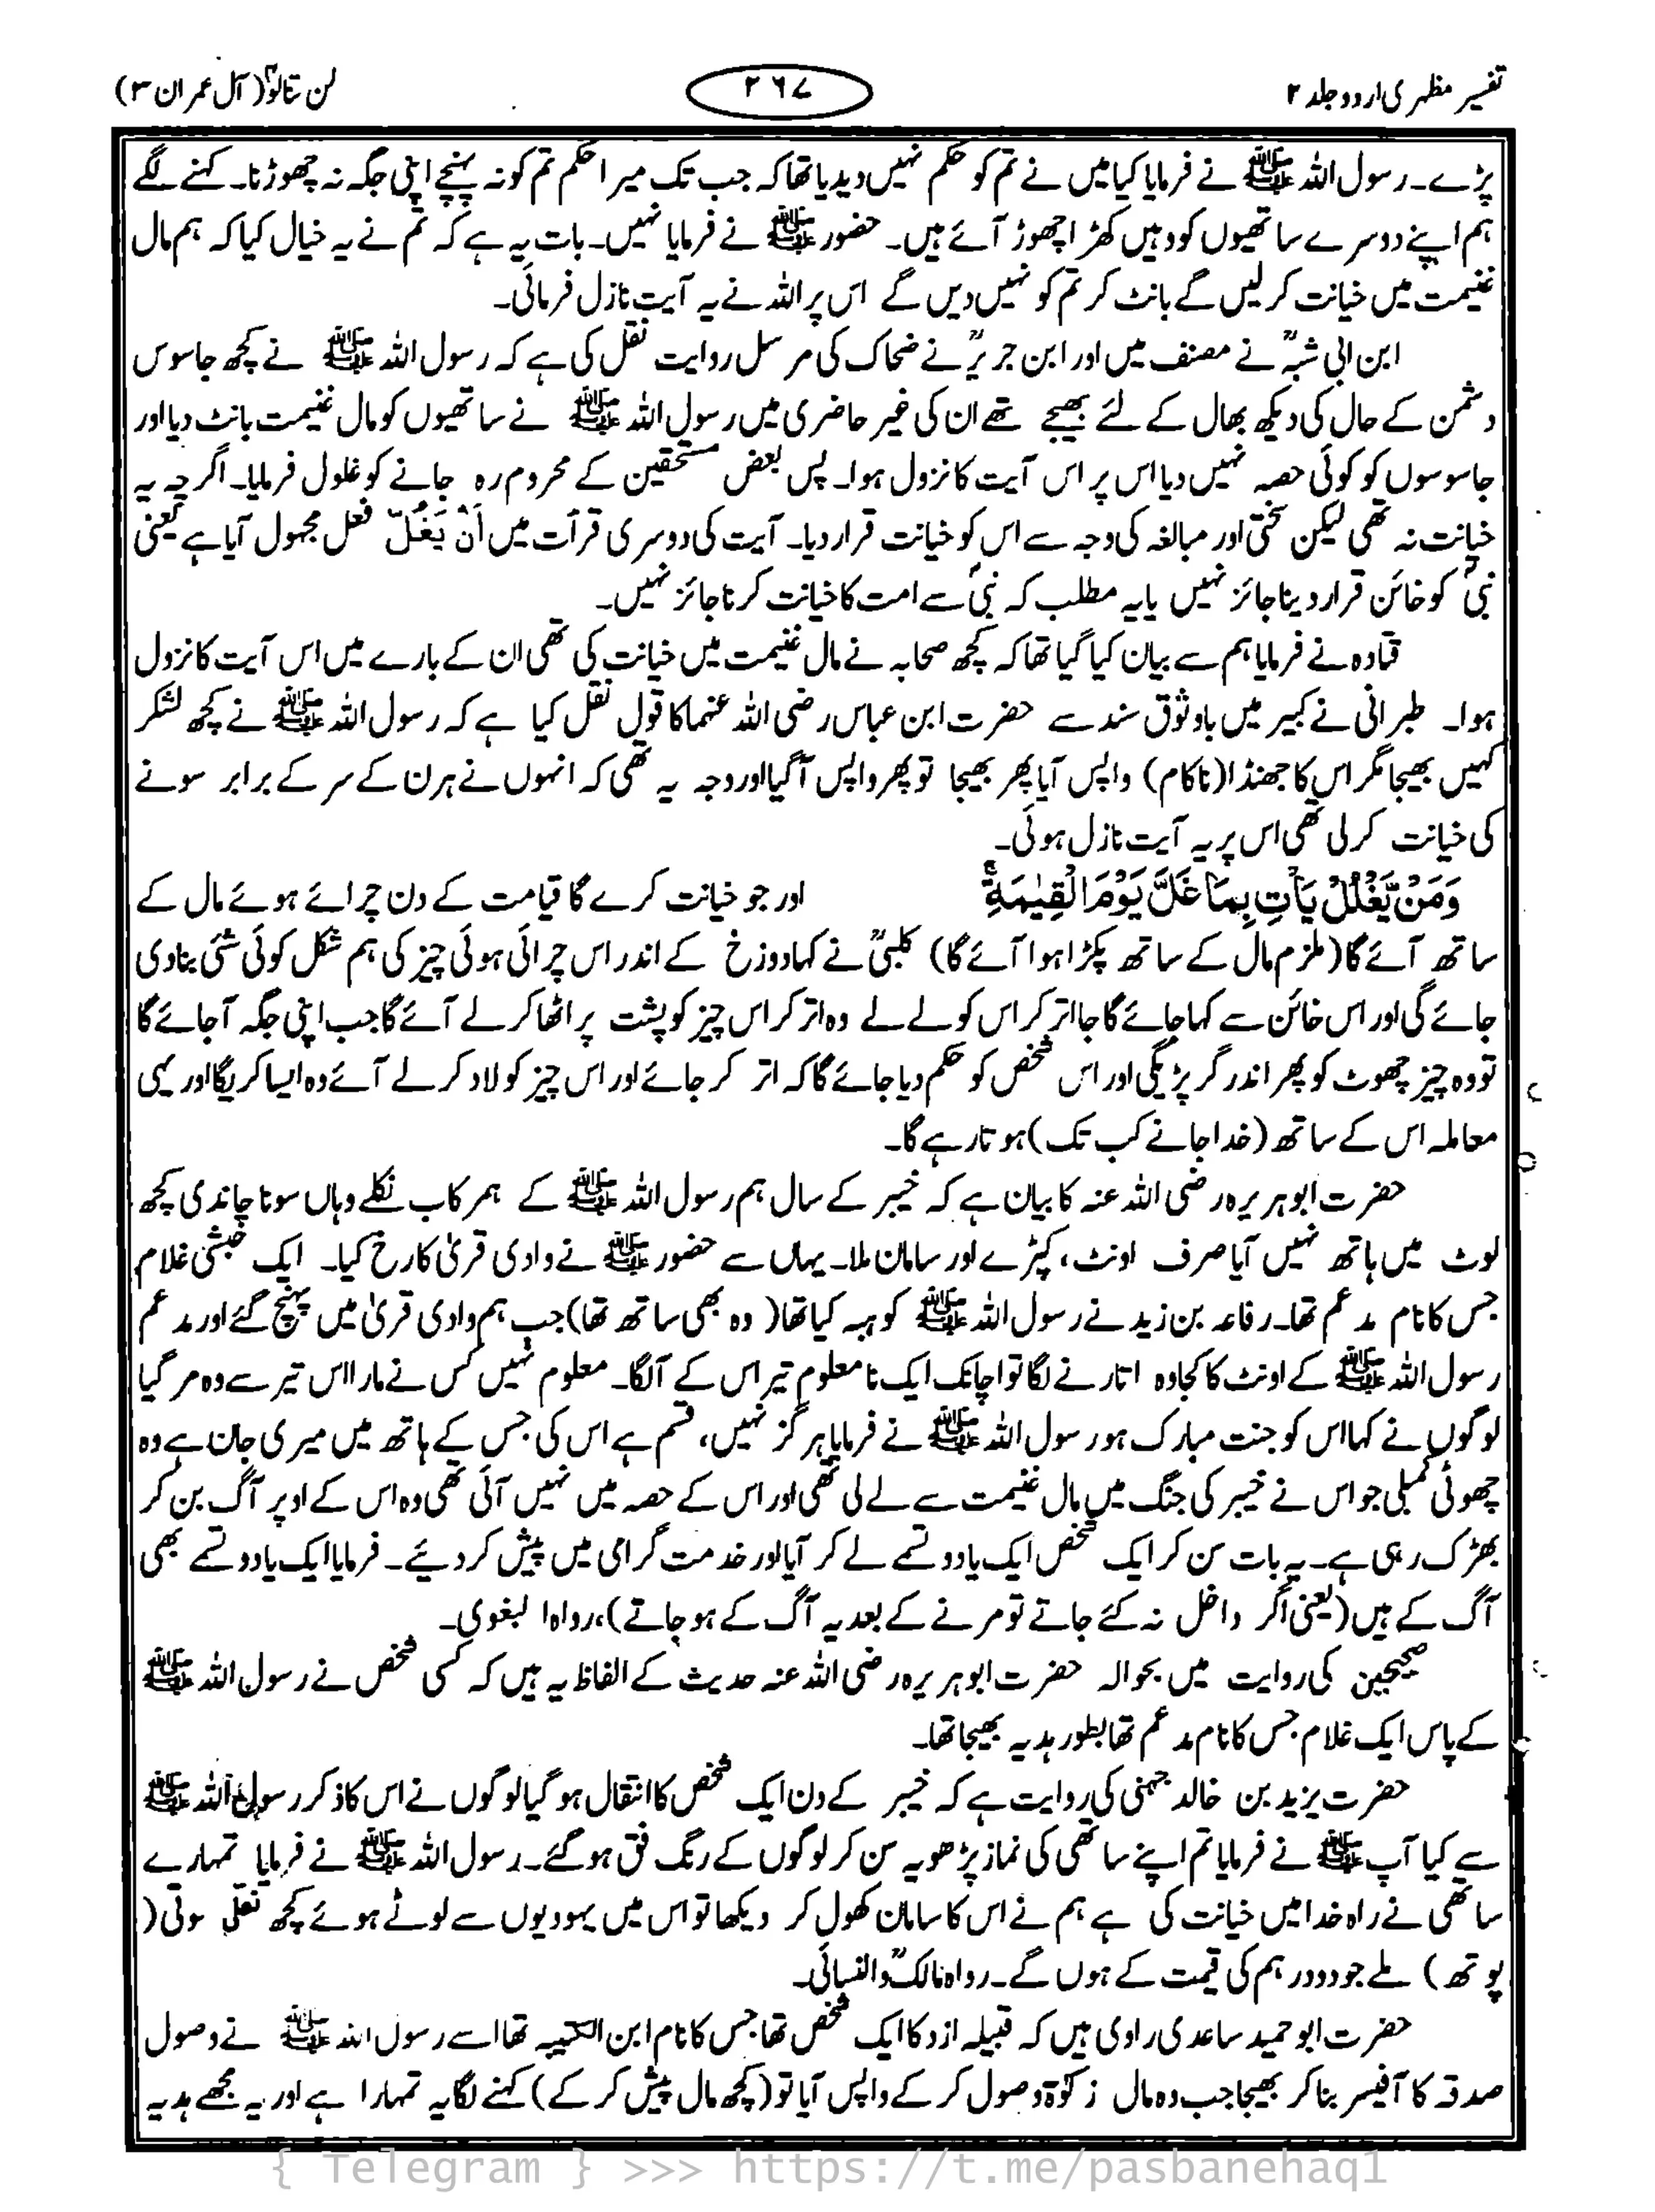 تفسیر مظہری اردو جلد ۲
۲۶۷
لن تنالوا (آل عمران ۳)
پڑے۔ رسول اللہ ﷺ نے فرمایا کیا میں نے تم کو حکم نہیں دیدیا تھا کہ جب تک میرا حکم تم کو نہ پہنچے اپنی جگہ نہ چھوڑنا۔ کہنے لگے
ہم اپنے دوسرے ساتھیوں کو وہیں کھڑا چھوڑ آئے ہیں۔ حضور ﷺ نے فرمایا نہیں۔ بات یہ ہے کہ تم نے یہ خیال کیا کہ ہم مال
غنیمت میں خیانت کر لیں گے بانٹ کر تم کو نہیں دیں گے اس پر اللہ نے یہ آیت نازل فرمائی۔
ابن ابی شیبہؒ نے مصنف میں اور ابن جریرؒ نے ضحاک کی مرسل روایت نقل کی ہے کہ رسول اللہ ﷺ نے کچھ جاسوس
دشمن کے حال کی دیکھ بھال کے لئے بھیجے تھے ان کی غیر حاضری میں رسول اللہ ﷺ نے ساتھیوں کو مال غنیمت بانٹ دیا اور
جاسوسوں کو کوئی حصہ نہیں دیا اس پر اس آیت کا نزول ہوا۔ پس بعض مستحقین کے محروم رہ جانے کو غلول فرمایا۔ اگرچہ یہ
خیانت نہ تھی لیکن سختی اور مبالغہ کی وجہ سے اس کو خیانت قرار دیا۔ آیت کی دوسری قرأت میں اَنْ یُغَلَّ فعل مجہول آیا ہے یعنی
نبیؐ کو خائن قرار دینا جائز نہیں یا یہ مطلب کہ نبیؐ سے امت کا خیانت کرنا جائز نہیں۔
قتادہ نے فرمایا ہم سے بیان کیا گیا تھا کہ کچھ صحابہ نے مال غنیمت میں خیانت کی تھی ان کے بارے میں اس آیت کا نزول
ہوا۔ طبرانی نے کبیر میں باوثوق سند سے حضرت ابن عباس رضی اللہ عنہما کا قول نقل کیا ہے کہ رسول اللہ ﷺ نے کچھ لشکر
کہیں بھیجا مگر اس کا جھنڈا (ناکام) واپس آیا پھر بھیجا تو پھر واپس آگیا اور وجہ یہ تھی کہ انہوں نے ہرن کے سر کے برابر سونے
کی خیانت کرلی تھی اس پر یہ آیت نازل ہوئی۔
وَمَنْ یَّغْلُلْ یَاْتِ بِمَا غَلَّ یَوْمَ الْقِیٰمَةِ ۚ اور جو خیانت کرے گا قیامت کے دن چرائے ہوئے مال کے
ساتھ آئے گا (ملزم مال کے ساتھ پکڑا ہوا آئے گا) کلبیؒ نے کہا دوزخ کے اندر اس چرائی ہوئی چیز کی ہم شکل کوئی شئی بنا دی
جائے گی اور اس خائن سے کہا جائے گا جا اتر کر اس کو لے لے وہ اتر کر اس چیز کو پشت پر اٹھا کر لے آئے گا جب اپنی جگہ آجائے گا
تو وہ چیز چھوٹ کو پھر اندر گر پڑیگی اور اس شخص کو حکم دیا جائے گا کہ اتر کر جائے اور اس چیز کو لاد کر لے آئے وہ ایسا کریگا اور یہی
معاملہ اس کے ساتھ (خدا جانے کب تک) ہوتا رہے گا۔
حضرت ابوہریرہ رضی اللہ عنہ کا بیان ہے کہ خیبر کے سال ہم رسول اللہ ﷺ کے ہمرکاب نکلے وہاں سونا چاندی کچھ
لوٹ میں ہاتھ نہیں آیا صرف اونٹ، کپڑے اور سامان ملا۔ یہاں سے حضور ﷺ نے وادی قریٰ کا رخ کیا۔ ایک حبشی غلام
جس کا نام مدعم تھا۔ رفاعہ بن زید نے رسول اللہ ﷺ کو ہبہ کیا تھا (وہ بھی ساتھ تھا) جب ہم وادی قریٰ میں پہنچ گئے اور مدعم
رسول اللہ ﷺ کے اونٹ کا کجاوہ اتارنے لگا تو اچانک ایک نامعلوم تیر اس کے آلگا۔ معلوم نہیں کس نے مارا اس تیر سے وہ مر گیا
لوگوں نے کہا اس کو جنت مبارک ہو رسول اللہ ﷺ نے فرمایا ہرگز نہیں، قسم ہے اس کی جس کے ہاتھ میں میری جان ہے وہ
چھوٹی کملی جو اس نے خیبر کی جنگ میں مال غنیمت سے لے لی تھی اور اس کے حصہ میں نہیں آئی تھی وہ اس کے اوپر آگ بن کر
بھڑک رہی ہے۔ یہ بات سن کر ایک شخص ایک یا دو تسمے لے کر آیا اور خدمت گرامی میں پیش کر دیئے۔ فرمایا ایک یا دو تسمے بھی
آگ کے ہیں (یعنی اگر داخل نہ کئے جاتے تو مرنے کے بعد یہ آگ کے ہو جاتے)، رواہ البغوی۔
صحیحین کی روایت میں بحوالہ حضرت ابوہریرہ رضی اللہ عنہ حدیث کے الفاظ یہ ہیں کہ کسی شخص نے رسول اللہ ﷺ
کے پاس ایک غلام جس کا نام مدعم تھا بطور ہدیہ بھیجا تھا۔
حضرت یزید بن خالد جہنی کی روایت ہے کہ خیبر کے دن ایک شخص کا انتقال ہو گیا لوگوں نے اس کا ذکر رسول اللہ ﷺ
سے کیا آپ ﷺ نے فرمایا تم اپنے ساتھی کی نماز پڑھو یہ سن کر لوگوں کے رنگ فق ہو گئے۔ رسول اللہ ﷺ نے فرمایا تمہارے
ساتھی نے راہ خدا میں خیانت کی ہے ہم نے اس کا سامان کھول کر دیکھا تو اس میں یہودیوں سے لوٹے ہوئے کچھ نقلی موتی (
پوتھ) ملے جو دو درہم کی قیمت کے ہوں گے۔ رواہ مالکؒ والنسائی۔
حضرت ابو حمید ساعدی راوی ہیں کہ قبیلہ ازد کا ایک شخص تھا جس کا نام ابن اللتبیہ تھا اسے رسول اللہ ﷺ نے وصول
صدقہ کا آفیسر بنا کر بھیجا جب وہ مال زکوٰۃ وصول کر کے واپس آیا تو (کچھ مال پیش کر کے) کہنے لگا یہ تمہارا ہے اور یہ مجھے ہدیہ
{ Telegram } >>> https://t.me/pasbanehaq1